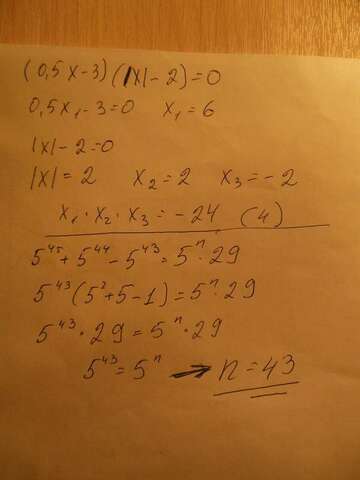 (0,5x-3)(|x|-2)=0
0,5x₁-3=0 x₁=6
|x|-2=0
|x|=2 x₂=2 x₃=-2
x₁·x₂·x₃=-24 (4)
5⁴⁵+5⁴⁴-5⁴³=5ⁿ·29
5⁴³(5²+5-1)=5ⁿ·29
5⁴³·29=5ⁿ·29
5⁴³=5ⁿ → n=43